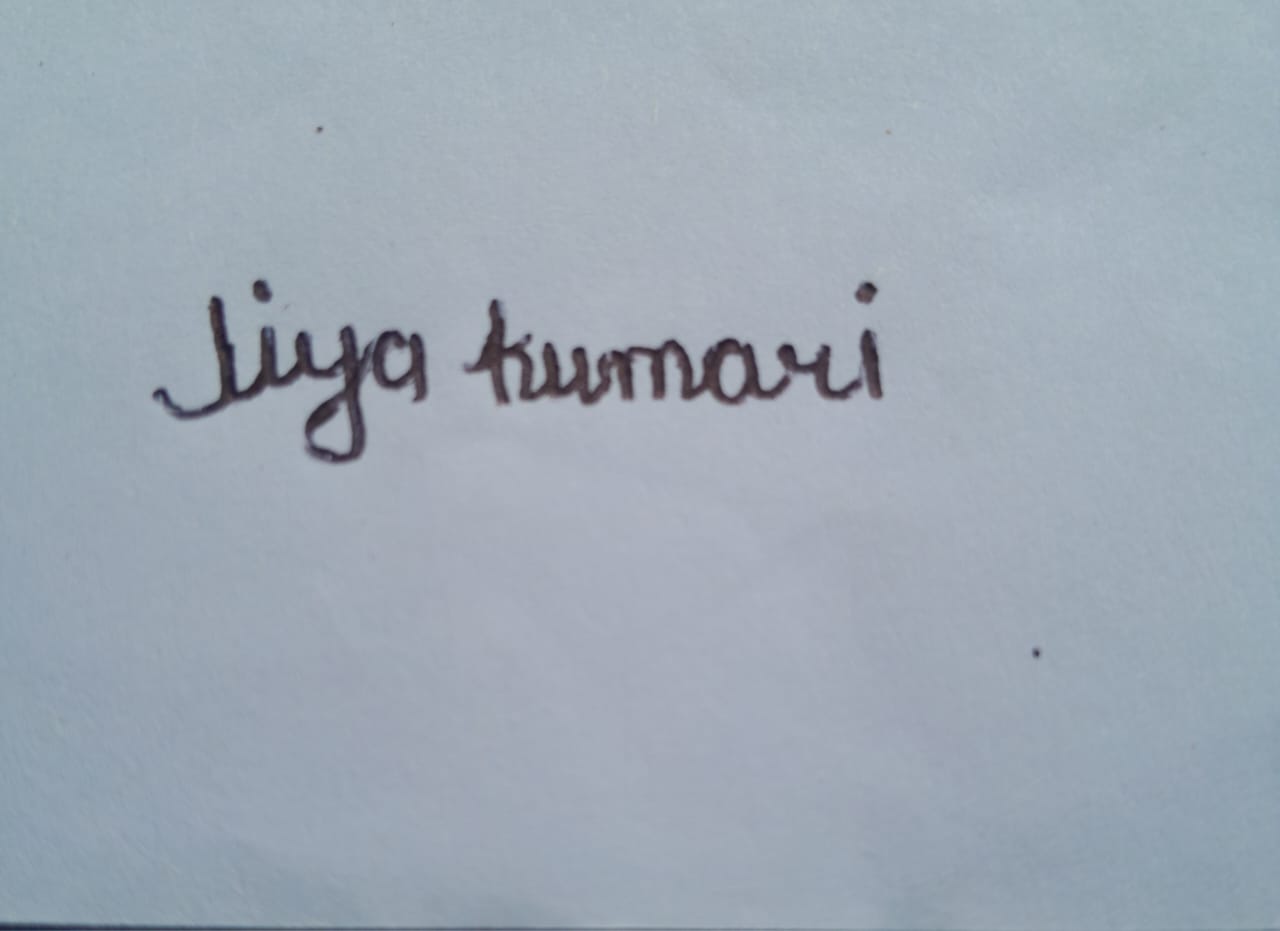 Jiya kumari